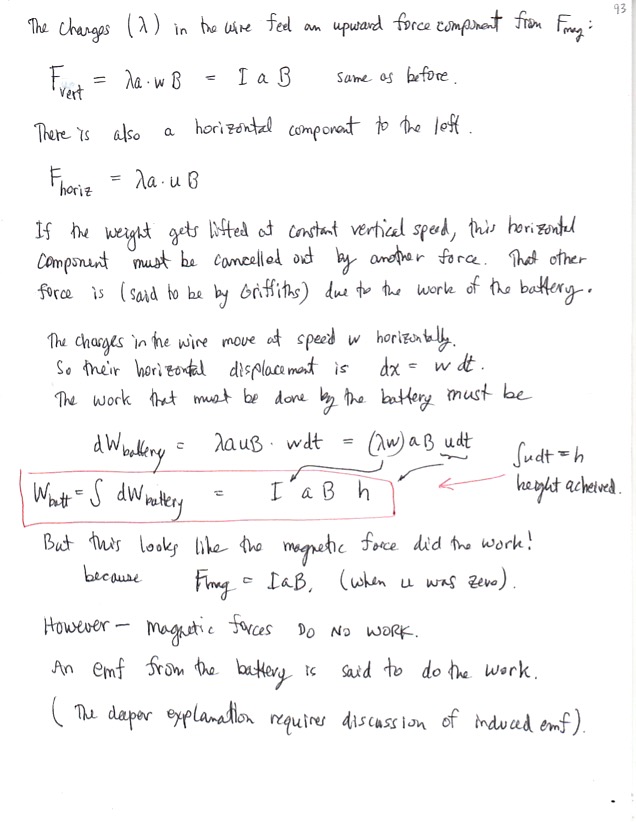 93
The charges (λ) in the wire feel an upward force component from Fmag:
Fvert = λa·wB = I a B same as before.
There is also a horizontal component to the left.
Fhoriz = λa·uB
If the weight gets lifted at constant vertical speed, this horizontal
component must be cancelled out by another force. That other
force is (said to be by Griffiths) due to the work of the battery.
The charges in the wire move at speed w horizontally.
So their horizontal displacement is dx = w dt.
The work that must be done by the battery must be
dWbattery = λauB· wdt = (λw) aB udt
∫udt = h
height acheived.
Wbatt = ∫ dWbattery = I a B h
But this looks like the magnetic force did the work!
because Fmag = IaB, (when u was zero).
However – magnetic forces DO NO WORK.
An emf from the battery is said to do the work.
( The deeper explanation requires discussion of induced emf).